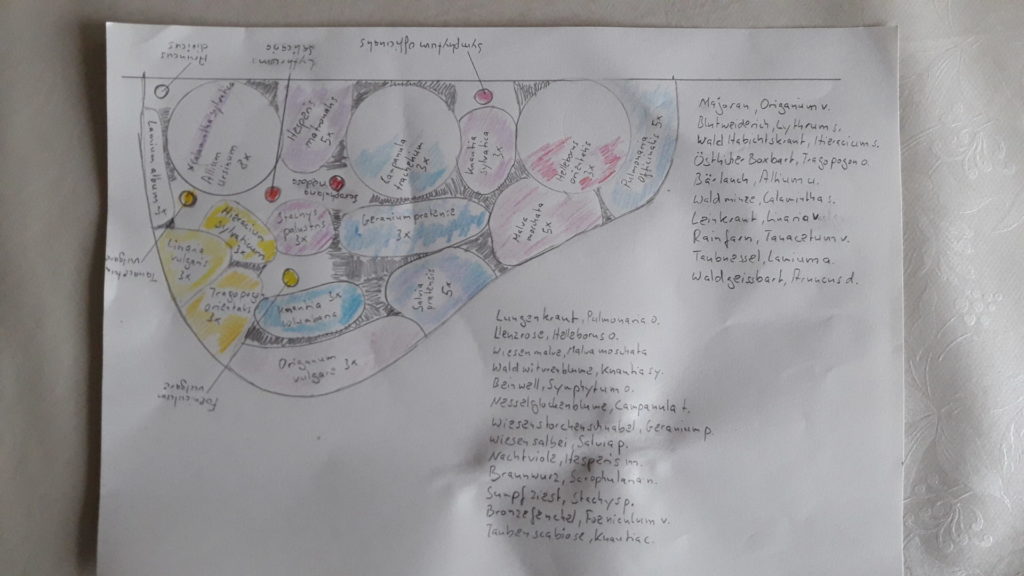 Aruncus
dioicus
Lythrum
salicaria
Symphytum officinalis
Lamium album 3x
Allium
ursinum
8x
Hesperis
matronalis
5x
Campanula
trachelium
3x
Knautia
sylvatica
3x
Helleborus
orientalis
3x
Pulmonaria
officinalis 5x
Hieracium
Stachys
palustris
3x
Geranium pratense
3x
Malva
moschata
5x
Linaria
vulgaris
3x
Tanacetum
vulgare
orientalis
3x
Knautia 3x
columbaria
Salvia
pratensis
5x
Origanum
vulgare 3x
Foeniculum
vulgare
Majoran, Origanium v.
Blutweiderich, Lythrum s.
Wald Habichtskraut, Hieracium s.
Östlicher Boxbart, Tragopogon o.
Bärlauch, Allium u.
Waldminze, Calamintha s.
Leinkraut, Linaria v.
Rainfarn, Tanacetum v.
Taubnessel, Lamium a.
Waldgeissbart, Aruncus d.
Lungenkraut, Pulmonaria o.
Lenzrose, Helleborus o.
Wiesenmalve, Malva moschata
Waldwitwenblume, Knautia sy.
Beinwell, Symphytum o.
Nesselglockenblume, Campanula t.
Wiesenstorchenschnabel, Geranium p.
Wiesensalbei, Salvia p.
Nachtviole, Hesperis m.
Braunwurz, Scrophularia n.
Sumpfziest, Stachys p.
Bronzefenchel, Foeniculum v.
Taubenscabiose, Knautia c.